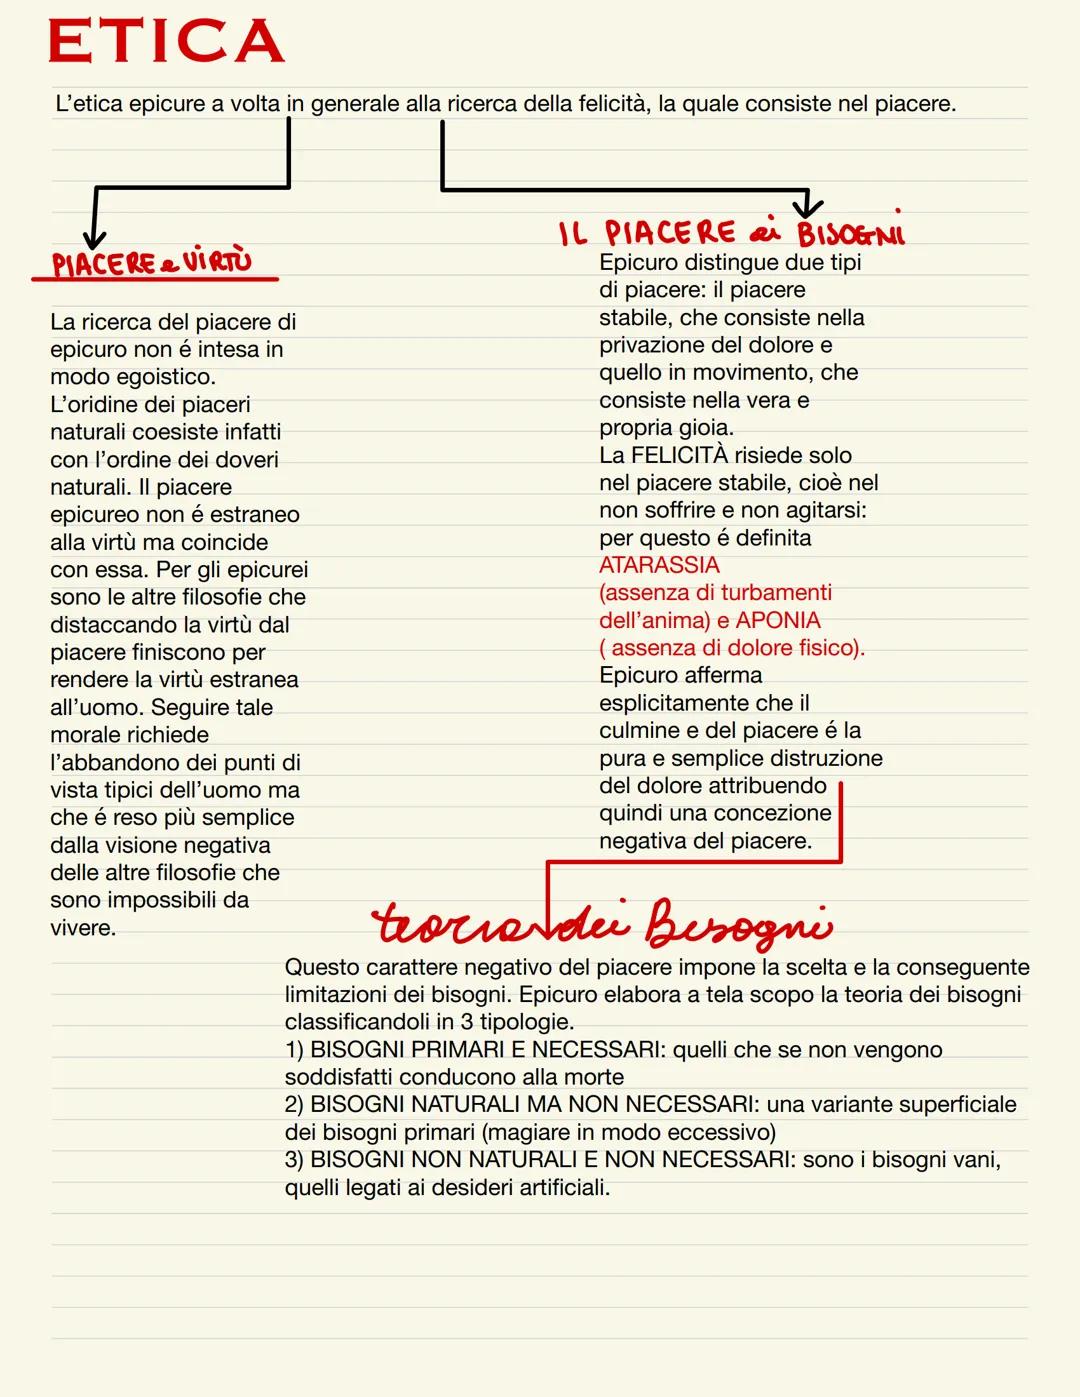 ETICA
L'etica epicure a volta in generale alla ricerca della felicità, la quale consiste nel piacere.
PIACERE e VIRTÙ
La ricerca del piacere di
epicuro non é intesa in
modo egoistico.
L'oridine dei piaceri
naturali coesiste infatti
con l'ordine dei doveri
naturali. Il piacere
epicureo non é estraneo
alla virtù ma coincide
con essa. Per gli epicurei
sono le altre filosofie che
distaccando la virtù dal
piacere finiscono per
rendere la virtù estranea
all'uomo. Seguire tale
morale richiede
l'abbandono dei punti di
vista tipici dell'uomo ma
che é reso più semplice
dalla visione negativa
delle altre filosofie che
sono impossibili da
vivere.
IL PIACERE ei BISOGNI
Epicuro distingue due tipi
di piacere: il piacere
stabile, che consiste nella
privazione del dolore e
quello in movimento, che
consiste nella vera e
propria gioia.
La FELICITÀ risiede solo
nel piacere stabile, cioè nel
non soffrire e non agitarsi:
per questo é definita
ATARASSIA
(assenza di turbamenti
dell'anima) e APONIA
( assenza di dolore fisico).
Epicuro afferma
esplicitamente che il
culmine e del piacere é la
pura e semplice distruzione
del dolore attribuendo
quindi una concezione
negativa del piacere.
teoria dei Bisogni
Questo carattere negativo del piacere impone la scelta e la conseguente
limitazioni dei bisogni. Epicuro elabora a tela scopo la teoria dei bisogni
classificandoli in 3 tipologie.
1) BISOGNI PRIMARI E NECESSARI: quelli che se non vengono
soddisfatti conducono alla morte
2) BISOGNI NATURALI MA NON NECESSARI: una variante superficiale
dei bisogni primari (magiare in modo eccessivo)
3) BISOGNI NON NATURALI E NON NECESSARI: sono i bisogni vani,
quelli legati ai desideri artificiali.